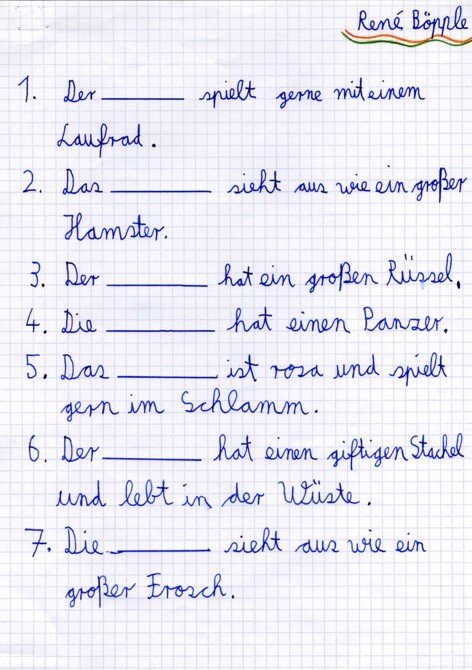 René Böpple
1. Der ________ spielt gerne mit einem
Laufrad.
2. Das ________ sieht aus wie ein großer
Hamster.
3. Der ________ hat ein großen Rüssel.
4. Die ________ hat einen Panzer.
5. Das ________ ist rosa und spielt
gern im Schlamm.
6. Der ________ hat einen giftigen Stachel
und lebt in der Wüste.
7. Die ________ sieht aus wie ein
großer Frosch.